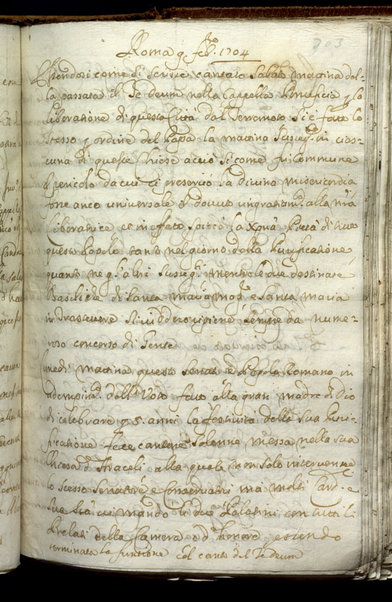 Roma 9 feb.ro 1704
203
Essendosi come si scrisse cantato Sabato mattina del-
la passata il Te deum nella Cappella Pontificia p la
liberatione di questa Città dal Terremoto si è fatto lo
stesso p ordine del Papa la mattina susseg.te in cias-
cuna di queste Chiese acciò si come fù commune
il pericolo da cui ci preservò la Divina misericordia
fosse anco universale il dovuto ringratiam.to alla sua
liberatrice et in fatti spiccò la Xpiana Pietà di tutto
questo Popolo tanto nel giorno della Purificatione
quanto ne gl'altri susseg.ti mentre le due destinate
Basiliche di Santa Maria Mag.re e Santa Maria
in Trastevere si viddero ripiene sempre da nume-
roso concorso di Gente
Lunedi mattina questo Senato e Popolo Romano in
adempim.to dell'Voto fatto alla gran Madre di Dio
di celebrare p 5. anni la festività della Sua Puri-
ficatione fece cantare solenne messa nella sua
Chiesa d'Araceli alla quale non solo intervenne
lo stesso Senatore e Conservatori ma molti Card.li e
Sua San.tà vi mandò li due Palatini con tutti li
Prelati della Camera d'honore, essendo
terminata la funtione col canto del Te deum